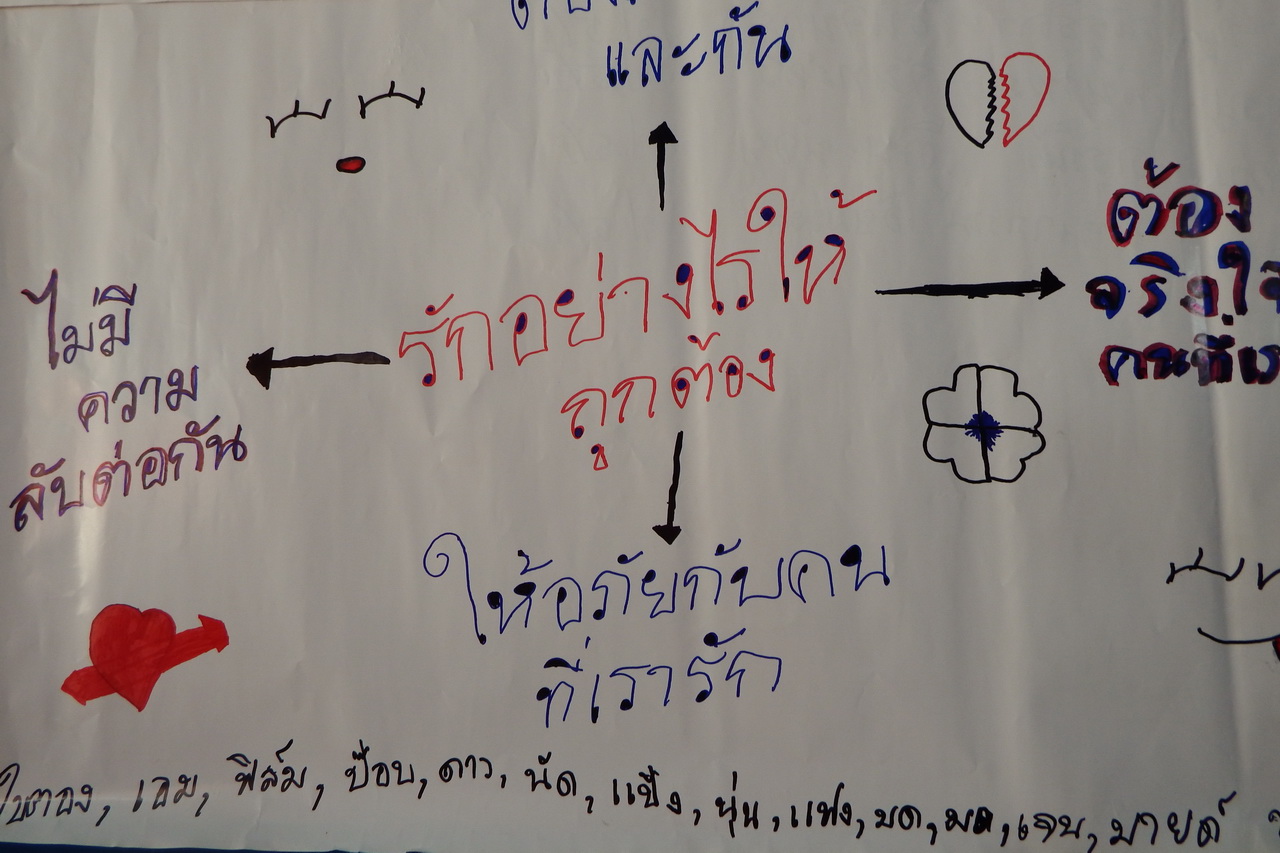 และกัน
รักอย่างไรให้
ถูกต้อง
ต้อง
จริงใ
คนที่เร
ไม่มี
ความ
ลับต่อกัน
ให้อภัยกับคน
ที่เรารัก
ใบตอง, เอม, ฟิล์ม, ป๊อบ, ดาว, นัด, แป้ง, ยุ่น, แฟง, มด, มด, เจน, มายด์